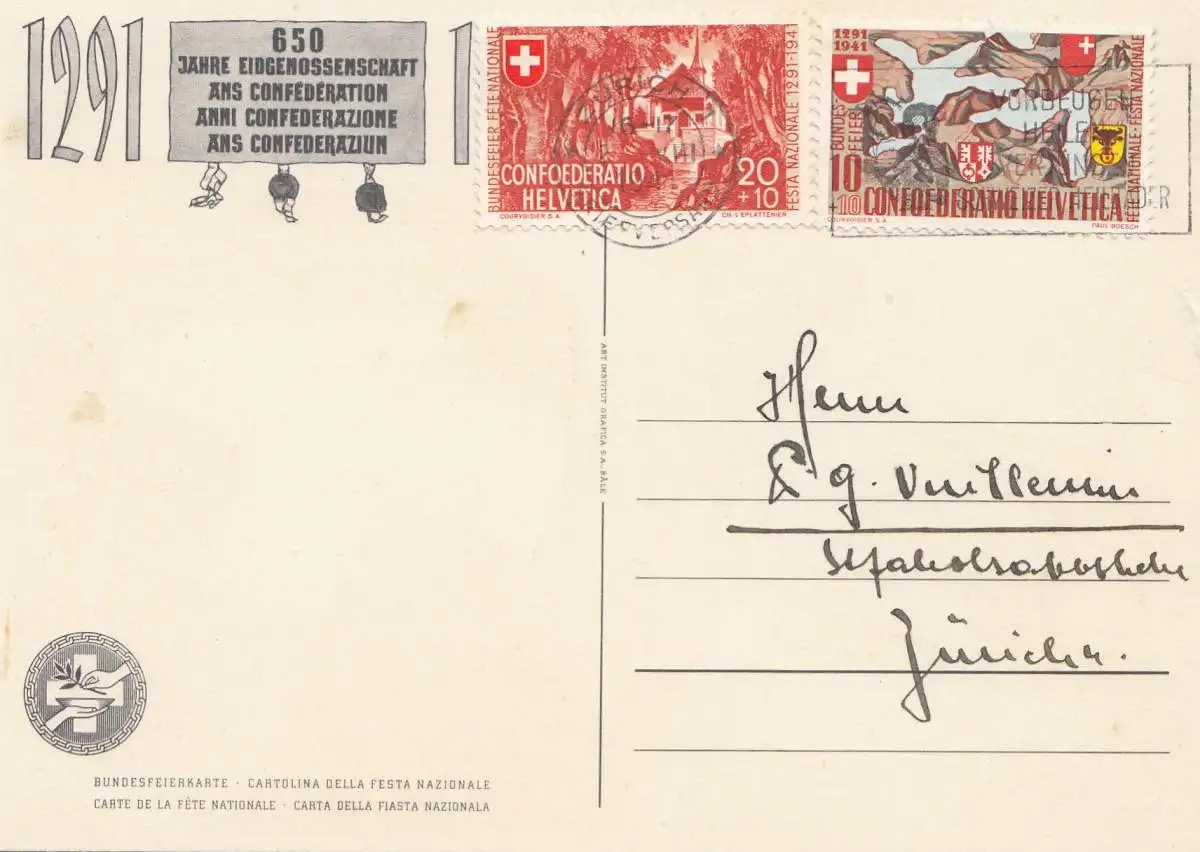 1291
650
JAHRE EIDGENOSSENSCHAFT
ANS CONFÉDÉRATION
ANNI CONFEDERAZIONE
ANS CONFEDERAZIUN
1
BUNDESFEIER FETE NATIONALE
FESTA NAZIONALE 1291-1941
CONFOEDERATIO
HELVETICA
20
+10
COURVOISIER S.A.
CH. L'EPLATTENIER
ZÜRICH
BRIEFVERSAND
1291
1941
BUNDESFEIER
FÊTE NATIONALE · FESTA NAZIONALE
10
+10
CONFOEDERATIO HELVETICA
COURVOISIER S.A.
PAUL BOESCH
VORBEUGEN
HEILEN
SCHWEIZER HEILBÄDER
ART INSTITUT GRAFICA S.A. BÂLE
Herrn
g. Vuillemin
Zürich.
BUNDESFEIERKARTE · CARTOLINA DELLA FESTA NAZIONALE
CARTE DE LA FÊTE NATIONALE · CARTA DELLA FIASTA NAZIONALA